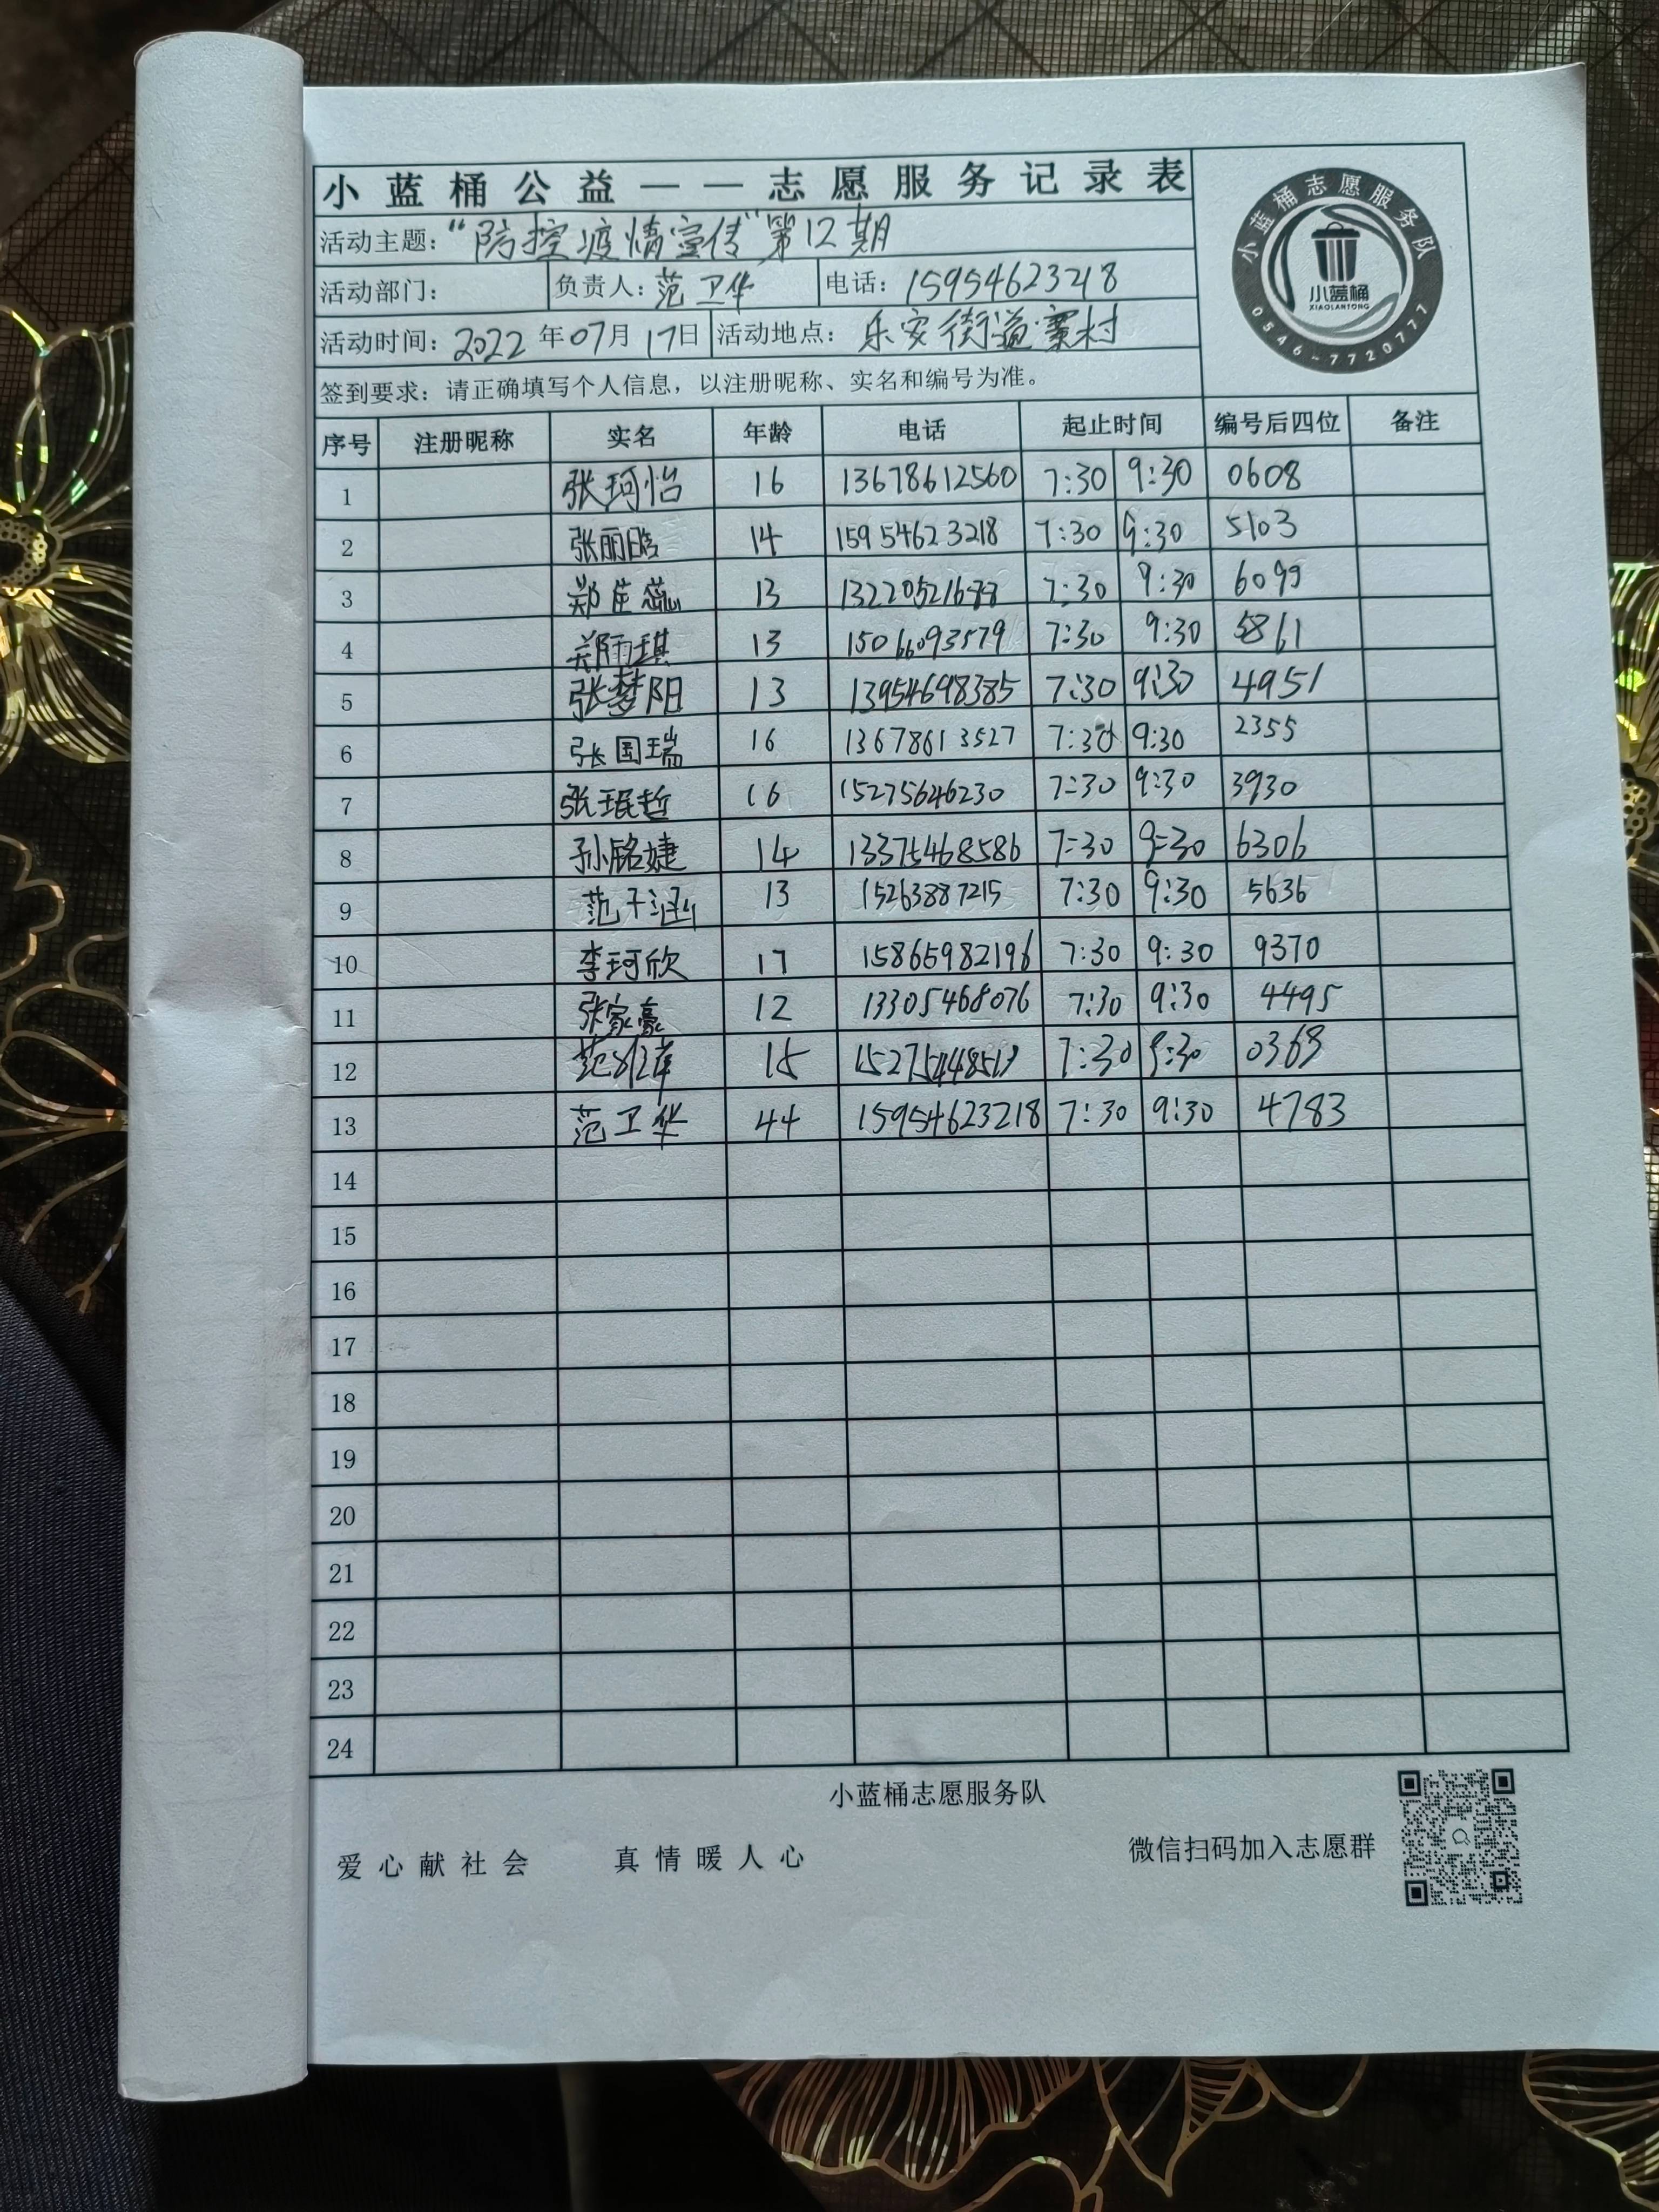 小蓝桶公益——志愿服务记录表
活动主题："防控疫情宣传"第12期
活动部门： 负责人：范卫华 电话：15954623218
活动时间：2022年07月17日 活动地点：乐安街道寨村
签到要求：请正确填写个人信息，以注册昵称、实名和编号为准。
小蓝桶志愿服务队
小蓝桶
XIAOLANTONG
0546-7720777
序号 注册昵称 实名 年龄 电话 起止时间 编号后四位 备注
1 张珂怡 16 13678612560 7:30 9:30 0608
2 张丽晗 14 15954623218 7:30 9:30 5103
3 郑佳蕊 13 7:30 9:30 6099
4 郑雨琪 13 15066093579 7:30 9:30 5861
5 张梦阳 13 13954698385 7:30 9:30 4951
6 张国瑞 16 13678613527 7:30 9:30 2355
7 张珉哲 16 15275646230 7:30 9:30 3930
8 孙铭婕 14 13375468586 7:30 9:30 6306
9 范千涵 13 15263887215 7:30 9:30 5636
10 李珂欣 17 15865982196 7:30 9:30 9370
11 张家豪 12 13305468076 7:30 9:30 4495
12 范 15 7:30 9:30 0368
13 范卫华 44 15954623218 7:30 9:30 4783
14
15
16
17
18
19
20
21
22
23
24
小蓝桶志愿服务队
爱心献社会 真情暖人心 微信扫码加入志愿群